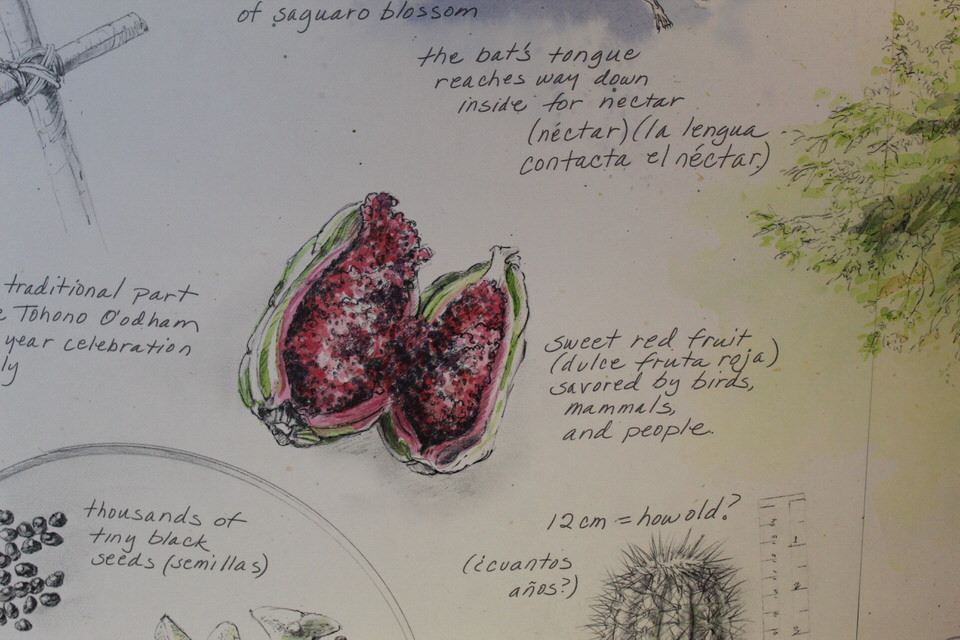 of saguaro blossom
the bat's tongue
reaches way down
inside for nectar
(néctar) (la lengua
contacta el néctar)
traditional part
Tohono O'odham
year celebration
ly
sweet red fruit
(dulce fruta roja)
savored by birds,
mammals,
and people.
thousands of
tiny black
seeds (semillas)
12 cm = how old?
(¿cuantos
años?)